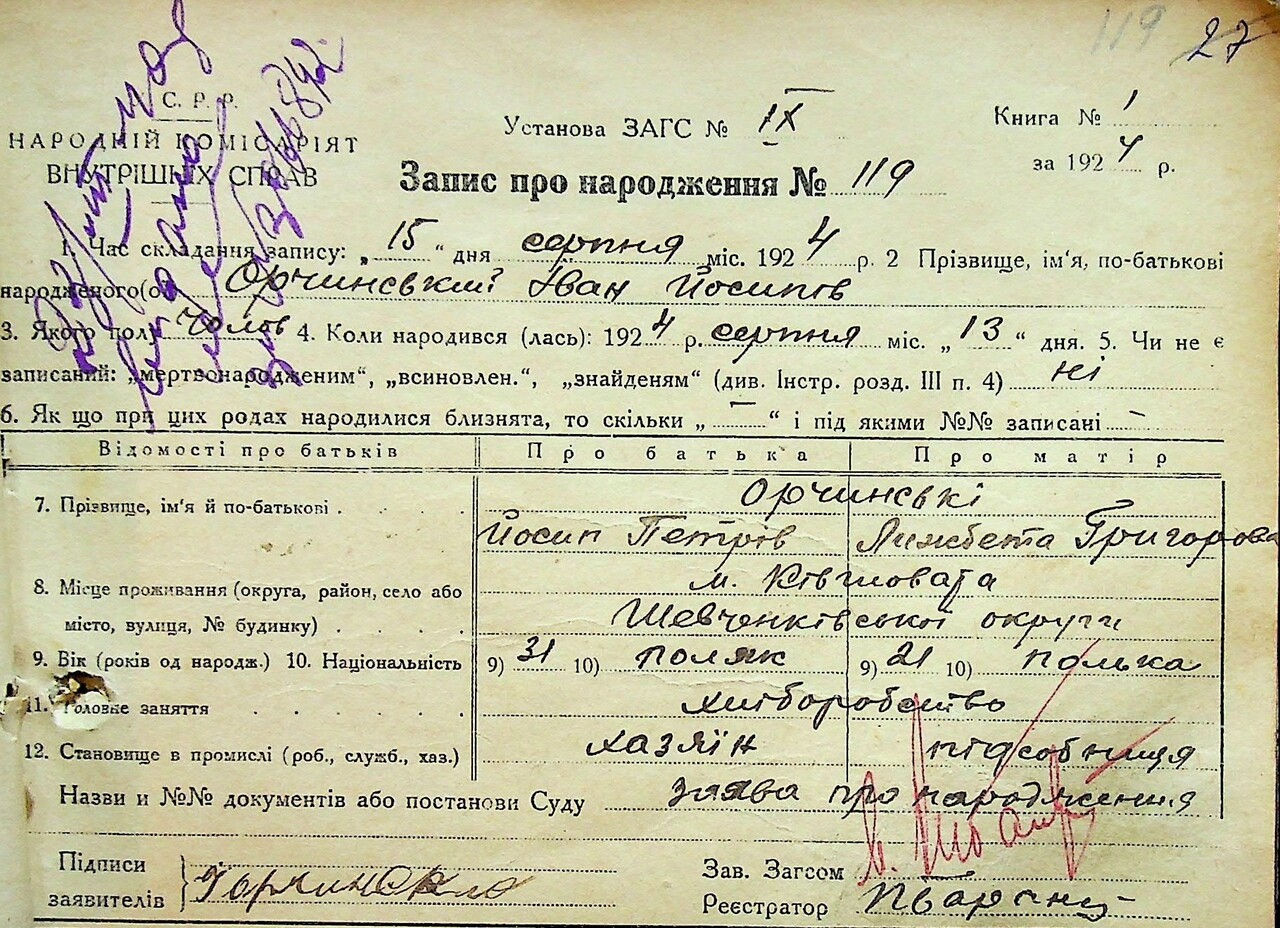 119 27
С. Р. Р.
НАРОДНІЙ КОМІСАРІЯТ
ВНУТРІШНІХ СПРАВ
Установа ЗАГС № IX
Книга № 1
за 1924 р.
Запис про народження № 119
1. Час складання запису: „15“ дня серпня міс. 1924 р. 2 Прізвище, ім'я, по-батькові
народженого(ої) Орчинський Іван Йосипів
3. Якого полу чолов 4. Коли народився (лась): 1924 р. серпня міс. „13“ дня. 5. Чи не є
записаний: „мертвонародженим“, „всиновлен.“, „знайденям“ (див. Інстр. розд. III п. 4) ні
6. Як що при цих родах народилися близнята, то скільки „ — “ і під якими №№ записані —
Відомості про батьків Про батька Про матір
7. Прізвище, ім'я й по-батькові . . . . Орчинські
Йосип Петрів Лижбета Григорова
8. Місце проживання (округа, район, село або м. Ківшовата
місто, вулиця, № будинку) . . . . Шевченківської округи
9. Вік (років од народж.) 10. Національність 9) 31 10) поляк 9) 21 10) полька
11. Головне заняття . . . . . хліборобство
12. Становище в промислі (роб., служб., хаз.) хазяїн підсобниця
Назви и №№ документів або постанови Суду заява про народження
Підписи
заявителів
Зав. Загсом
Реєстратор